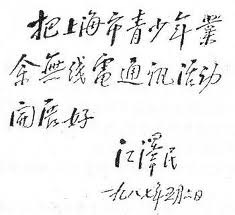 把上海市青少年業
余無线電通讯活动
開展好
江澤民
一九八七年五月六日